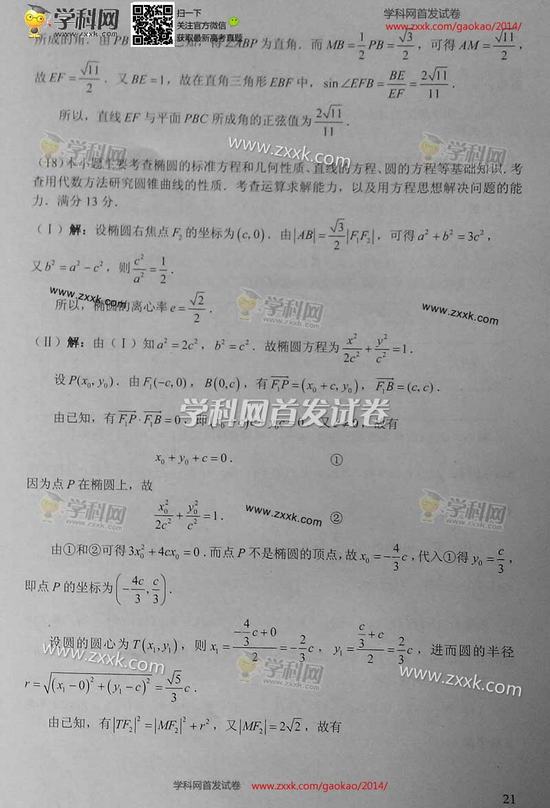 学科网 www.zxxk.com
扫一下
关注官方微信
获取最新高考真题
学科网首发试卷
www.zxxk.com/gaokao/2014/
所成的角．由 PB ∠ABP 为直角．而 MB = 1/2 PB = √3/2，可得 AM = √11/2，
故 EF = √11/2．又 BE = 1，故在直角三角形 EBF 中，sin∠EFB = BE/EF = 2√11/11．
所以，直线 EF 与平面 PBC 所成角的正弦值为 2√11/11．
(18) 本小题主要考查椭圆的标准方程和几何性质、直线的方程、圆的方程等基础知识．考
查用代数方法研究圆锥曲线的性质．考查运算求解能力，以及用方程思想解决问题的能
力．满分 13 分．
(Ⅰ) 解：设椭圆右焦点 F₂ 的坐标为 (c, 0)．由 |AB| = √3/2 |F₁F₂|，可得 a² + b² = 3c²，
又 b² = a² − c²，则 c²/a² = 1/2．
所以，椭圆的离心率 e = √2/2．
(Ⅱ) 解：由 (Ⅰ) 知 a² = 2c²，b² = c²．故椭圆方程为 x²/2c² + y²/c² = 1．
设 P(x₀, y₀)．由 F₁(−c, 0)，B(0, c)，有 F₁P = (x₀ + c, y₀)，F₁B = (c, c)．
由已知，有 F₁P · F₁B = 0，即 c = 0．又 c ≠ 0，故有
x₀ + y₀ + c = 0． ①
因为点 P 在椭圆上，故
x₀²/2c² + y₀²/c² = 1． ②
由①和②可得 3x₀² + 4cx₀ = 0．而点 P 不是椭圆的顶点，故 x₀ = −4/3 c，代入①得 y₀ = c/3，
即点 P 的坐标为 (−4c/3, c/3)．
设圆的圆心为 T(x₁, y₁)，则 x₁ = (−4/3 c + 0)/2 = −2/3 c，y₁ = (c/3 + c)/2 = 2/3 c，进而圆的半径
r = √((x₁ − 0)² + (y₁ − c)²) = √5/3 c．
由已知，有 |TF₂|² = |MF₂|² + r²，又 |MF₂| = 2√2，故有
学科网首发试卷 www.zxxk.com/gaokao/2014/
21